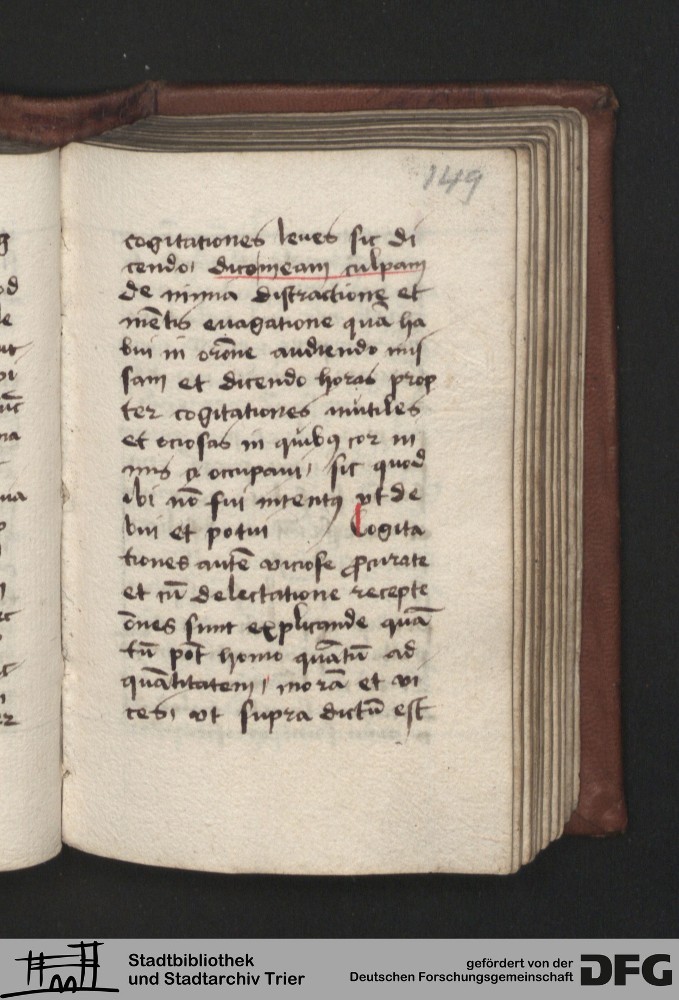 149
cogitationes leues sic di
cendo, dico meam culpam
de nimia distractione et
mẽtis euagatione quã ha
bui in orõne audiendo mis
sam et dicendo horas prop
ter cogitationes inutiles
et ociosas in quibꝯ cor
occupaui, sic quod
ibi nõ fui intentꝯ vt de
bui et potui Cogita
tiones autẽ viciose ꝓcurate
et cũ delectatione recepte
õnes sunt explicande quã
tũ põt homo quãtũ ad
quãtitatem, morã et vi
ces, vt supra dictũ est
Stadtbibliothek
und Stadtarchiv Trier
gefördert von der
Deutschen Forschungsgemeinschaft
DFG